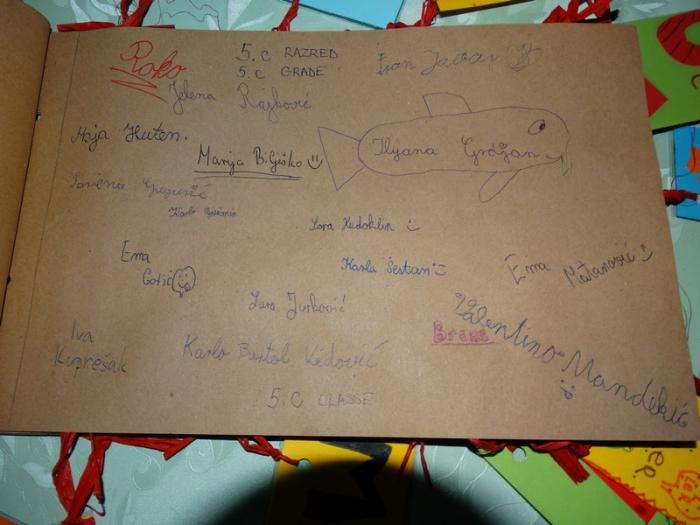 Roko
5.c RAZRED
5.c GRADE
Ivan
Jelena Rajković
Maja Huten.
Marija Biljičko
Ilyana Grdjan
Lovena
Karlo
Lora Hudoklin
Ema
Gotić
Karla Šestan
Ema Matanović
Lara Jurković
Valentino Mandekić
Brene
Iva
Kuprešak
Karlo Bartol Kedović
5.c CLASSE